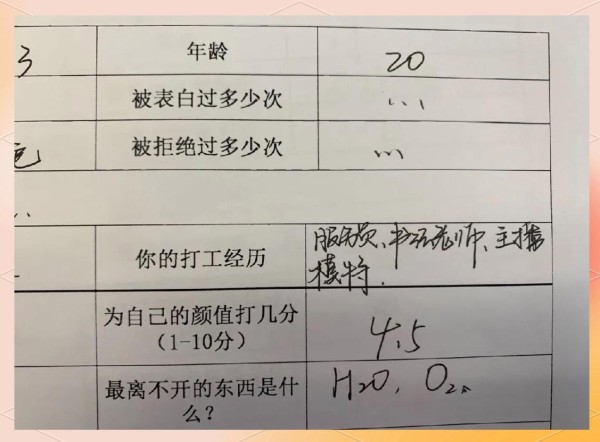 年龄 20
被表白过多少次 ...
色 被拒绝过多少次 ...
你的打工经历 服务员、书法老师、主播
模特.
为自己的颜值打几分
(1-10分) 4.5
最离不开的东西是什
么? H2O, O2.